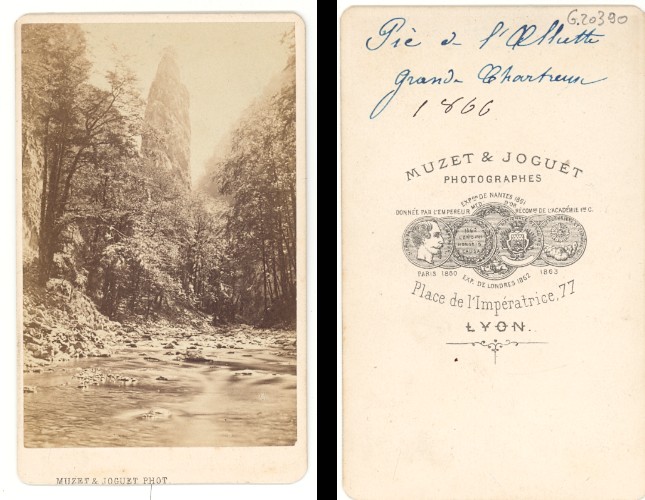 MUZET & JOGUET PHOT.
G.20390
Pic de l'Œillette
Grande Chartreuse
1866
MUZET & JOGUET
PHOTOGRAPHES
EXP.ON DE NANTES 1861
MED. D'OR
DONNÉE PAR L'EMPEREUR
RÉCOMP.SE DE L'ACADÉMIE I.LE C.
PARIS 1860
EXP. DE LONDRES 1862
1863
Place de l'Impératrice, 77
LYON.